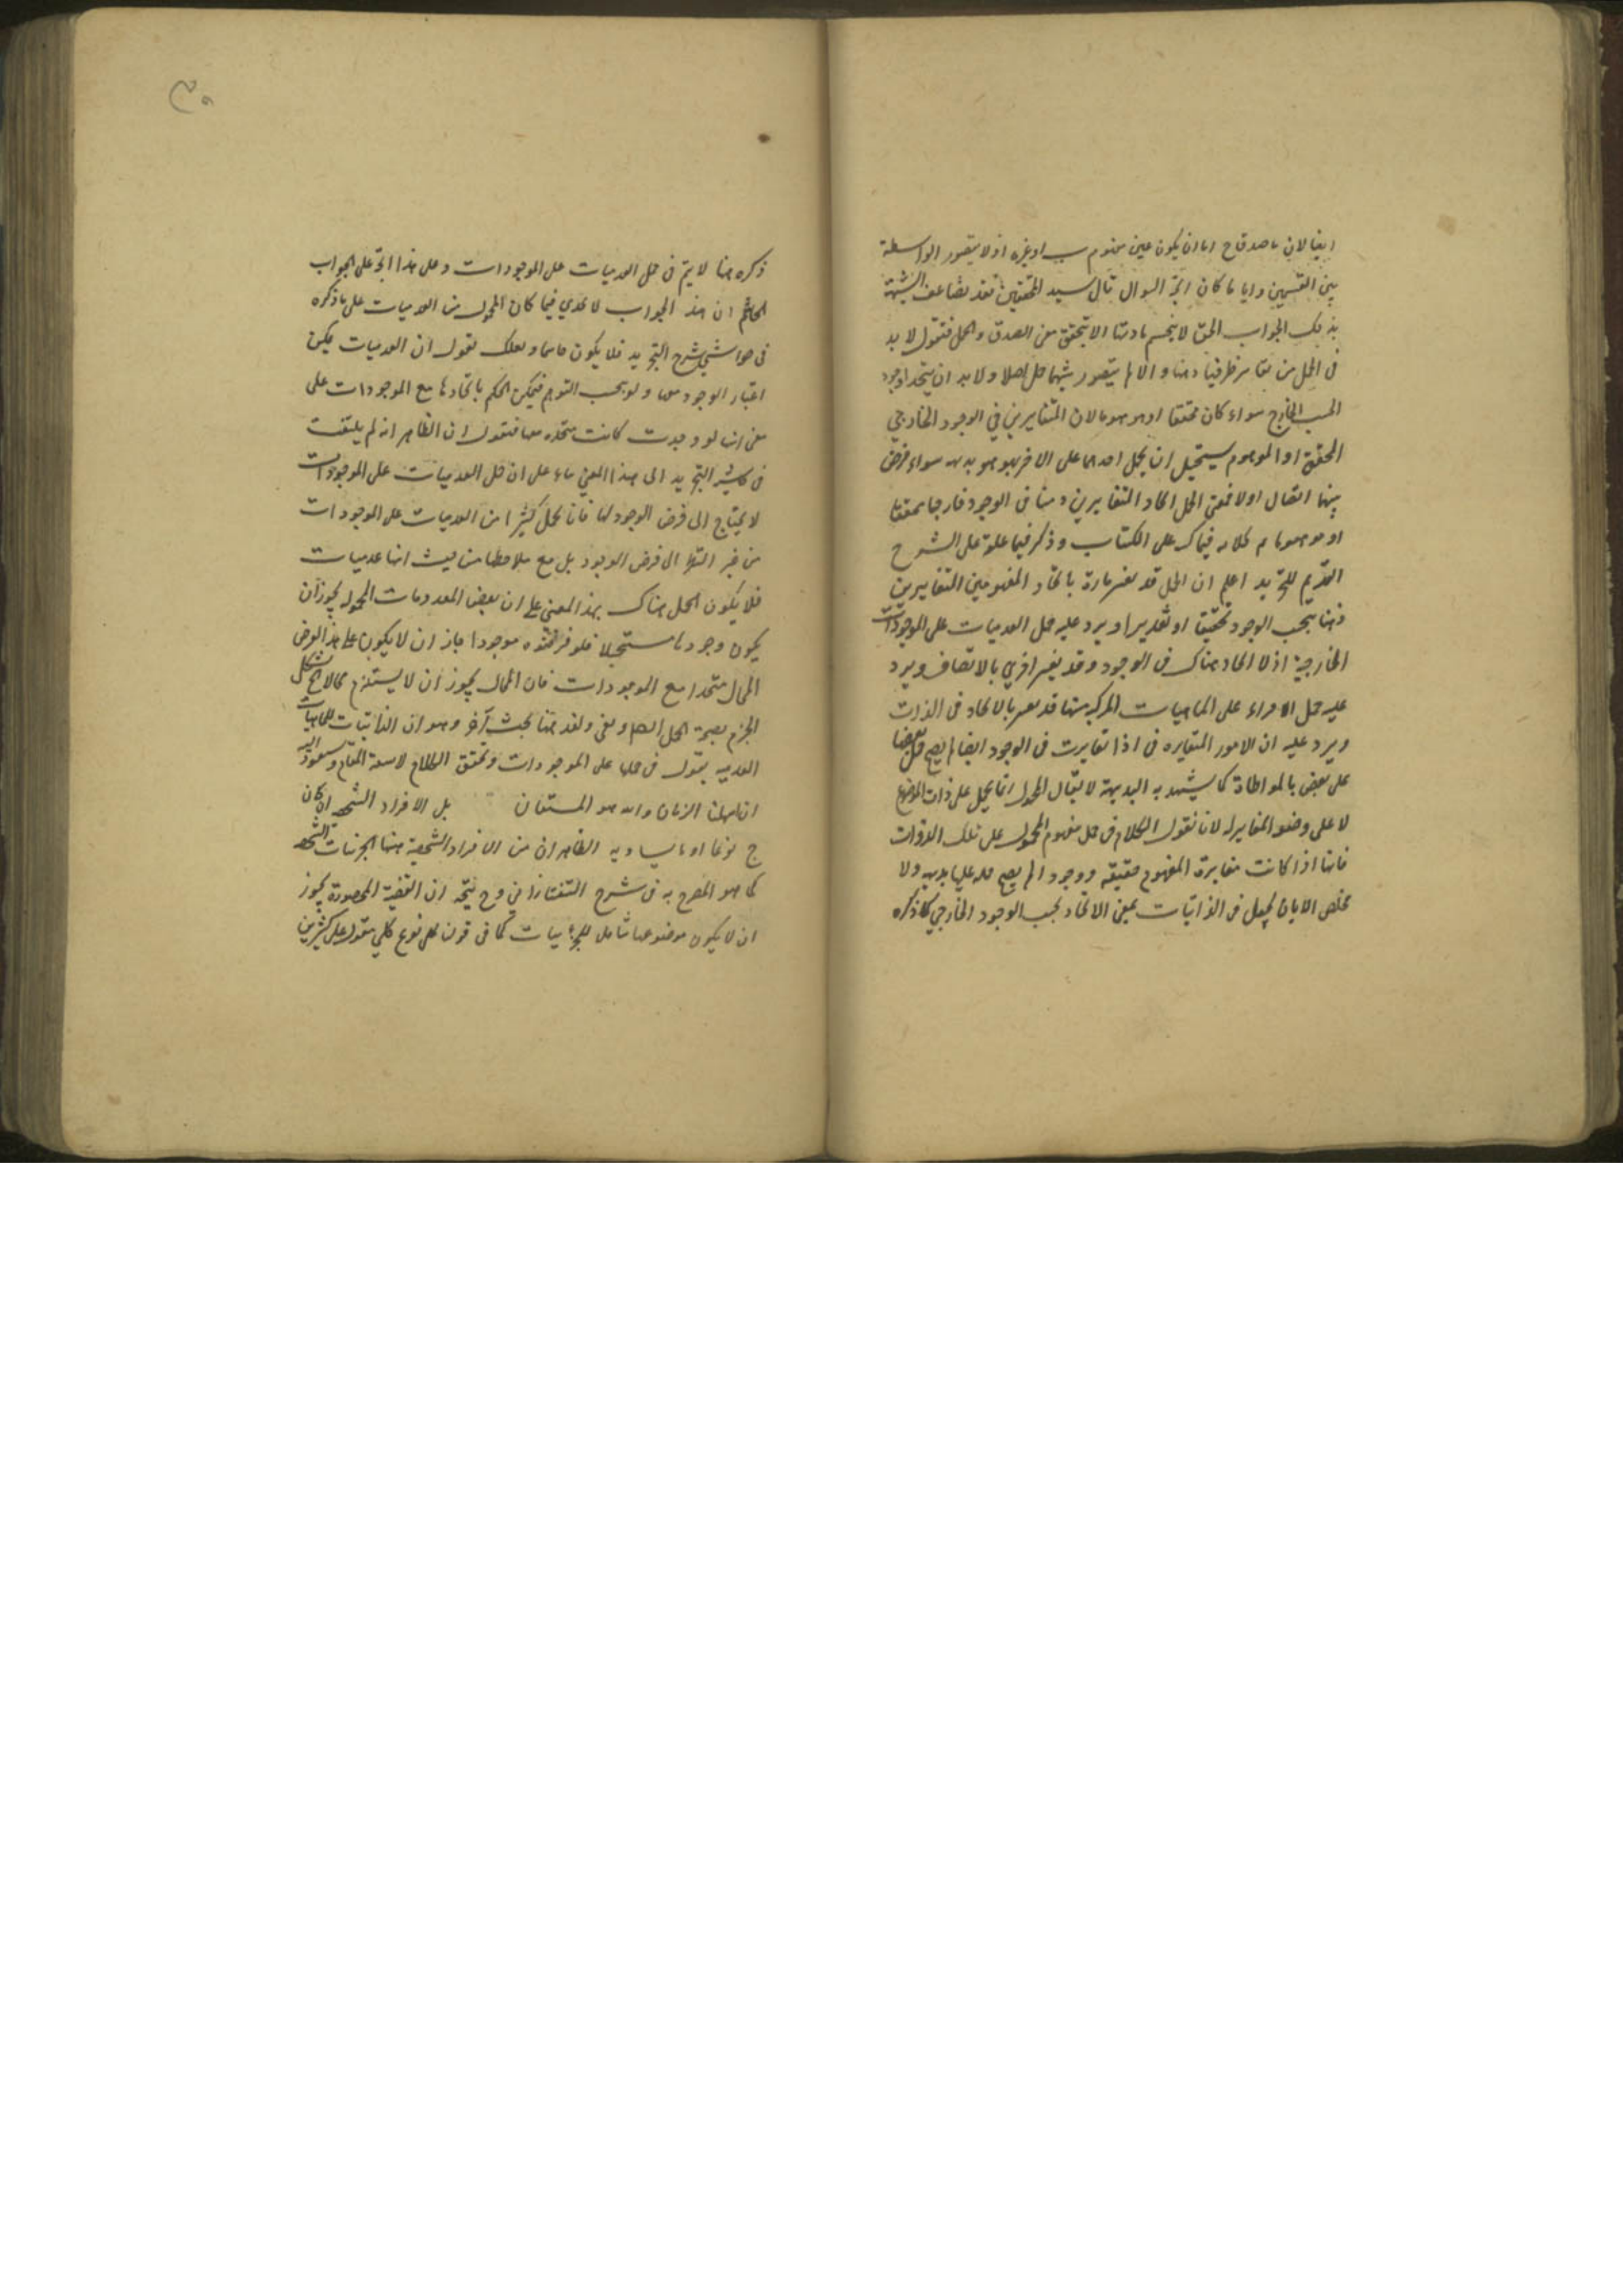 ايضا لان ما صدق ج اما ان يكون عين مفهوم ب او غيره اذ لا يتصور الواسطة
بين القسمين وايا ما كان اتجه السوال قال سيد المحققين فقد تضاعف الشبهة
بذلك الجواب الحق لا ينحسم مادتها الا بتحقق معنى الصدق والحمل فنقول لا بد
فى الحمل من تغاير طرفيه ذهنا والا لم يتصور بينهما حمل اصلا ولا بد ان يتحدا وجودا
بحسب الخارج سواء كان محققا او موهوما لان المتغايرين في الوجود الخارجي
المحقق او الموهوم يستحيل ان يحمل احدهما على الاخر بهو هو بديهة سواء فرض
بينهما اتصال اولا فمعنى الحمل اتحاد المتغايرين ذهنا فى الوجود خارجا محققا
او موهوما تم كلامه فيما ك على الكتاب وذكر فيما علقه على الشرح
القديم للتجريد اعلم ان الحمل قد يفسر تارة باتحاد المفهومين المتغايرين
ذهنا بحسب الوجود تحقيقا او تقديرا ويرد عليه حمل العدميات على الموجودات
الخارجية اذ لا اتحاد هناك فى الوجود وقد يفسر اخرى بالاتصاف ويرد
عليه حمل الاجزاء على الماهيات المركبة منها وقد يفسر بالاتحاد فى الذات
ويرد عليه ان الامور المتغايرة فى اذا تغايرت فى الوجود ايضا لم يصح حمل بعضها
على بعض بالمواطاة كما يشهد به البديهة لا يقال المحمول انما يحمل على ذات الموضوع
لا على وصفه المغاير له لانا نقول الكلام فى حمل مفهوم المحمول على تلك الذوات
فانها اذا كانت مغايرة المفهوم حقيقة ووجودا لم يصح حمله عليها بديهة ولا
مخلص الا بان يجعل فى الذاتيات بمعنى الاتحاد بحسب الوجود الخارجي كما ذكره
ذكره هنا لا يتم فى حمل العدميات على الموجودات وعلى هذا اتجه على الجواب
ان هذا الجواب لا يجدي فيما كان المحمول من العدميات على ما ذكره
فى حواشى شرح التجريد فلا يكون حاسما ولعلك تقول ان العدميات يمكن
اعتبار الوجود معها ولو بحسب التوهم فيمكن الحكم باتحادها مع الموجودات على
معنى انها لو وجدت كانت متحدة معها فنقول ان الظاهر انه لم يلتفت
فى حاشية التجريد الى هذا المعنى بناء على ان حمل العدميات على الموجودات
لا يحتاج الى فرض الوجود لها فانا نحمل كثيرا من العدميات على الموجودات
من غير التفات الى فرض الوجود بل مع ملاحظتها من حيث انها عدميات
فلا يكون الحمل هناك بهذا المعنى على ان بعض المعدومات المحمولة يجوز ان
يكون وجودها مستحيلا فلو فرضته موجودا جاز ان لا يكون على هذا الفرض
المحال متحدا مع الموجودات فان المحال يجوز ان لا يستلزم محالا فيشكل
الجزم بصحة الحمل وبقى بحث آخر وهو ان الذاتيات للماهيات
العدمية بقول فى حملها على الموجودات وتحقق الكلام لا يسعه المقام وسنعود اليه
ان امهلنا الزمان والله هو المستعان بل الافراد الشخصية ان كان
ج نوعا او ما يساويه الظاهر ان من الافراد الشخصية هنا الجزئيات الشخصية
كما هو المصرح به فى شرح التفتازانى وح يتجه ان القضية المحصورة يجوز
ان لا يكون موضوعها شاملا للجزئيات كما فى قولنا كل نوع كلي مقول على كثيرين